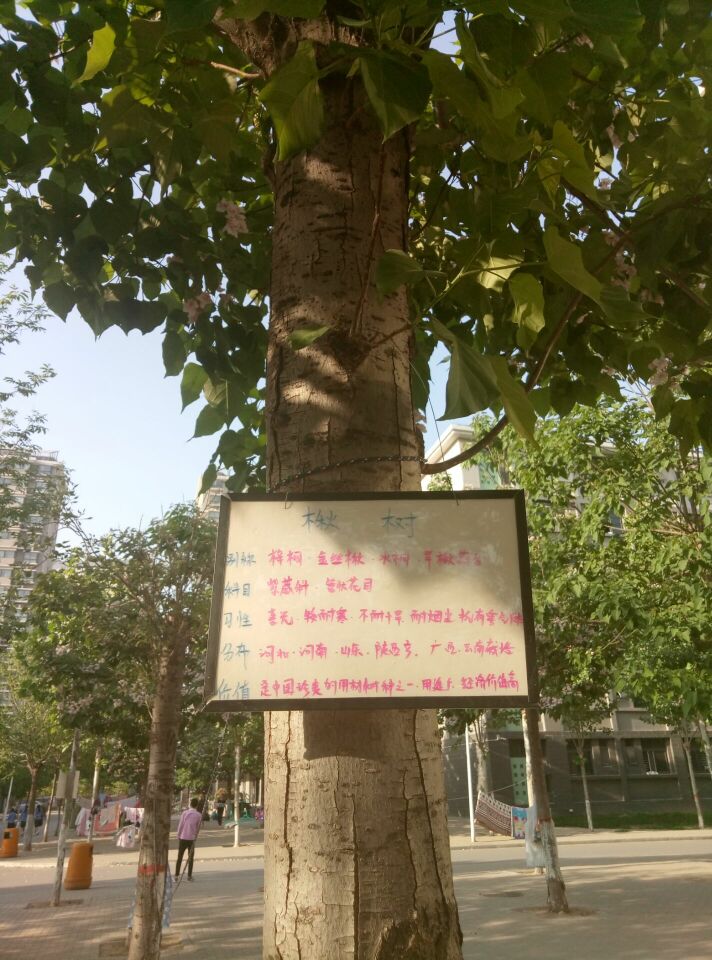 楸 树
别称 梓桐·金丝楸·水桐·旱楸
科目 紫葳科·管状花目
习性 喜光·较耐寒·不耐干旱·耐烟尘抗有害气体
分布 河北·河南·山东·陕西·广西·云南栽培
价值 是中国珍贵的用材树种之一·用途广·经济价值高